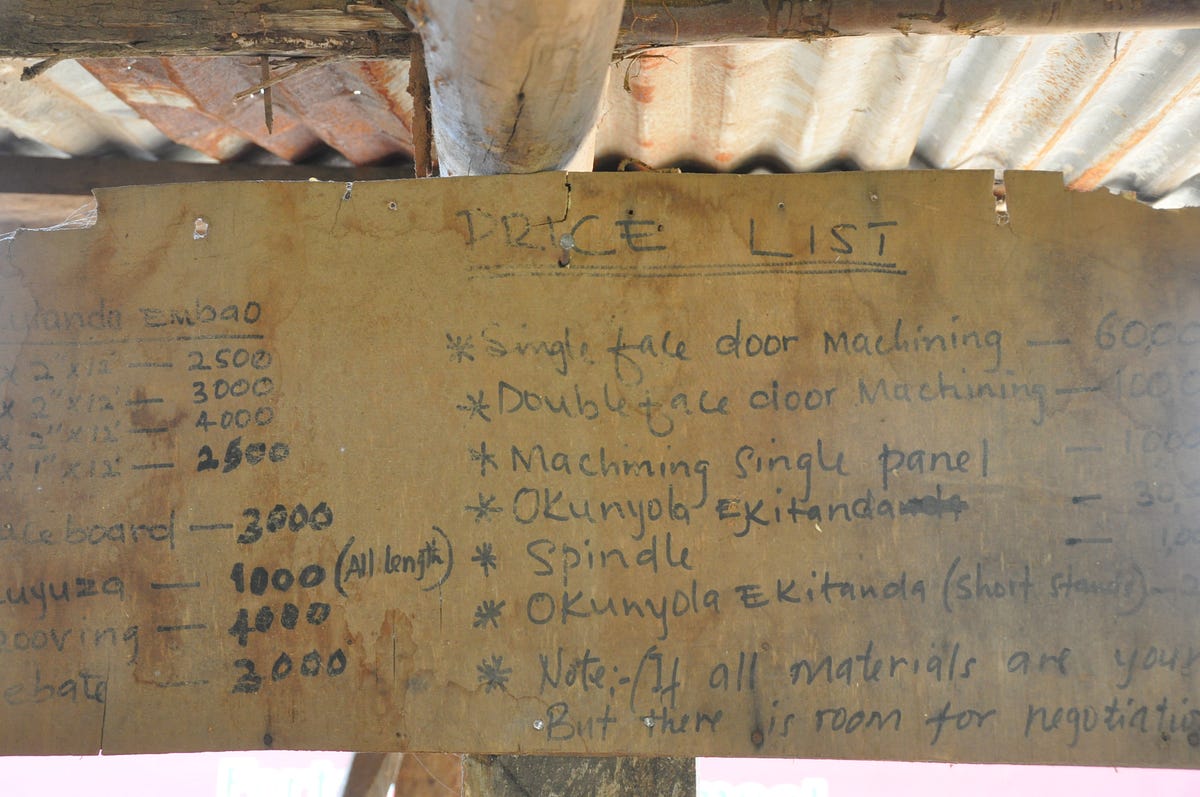 PRICE LIST
EMbao
x 2" x 12' — 2500
x 2" x 12' — 3000
x 2" x 12' — 4000
x 1" x 12' — 2500
board — 3000
— 1000 (All length)
ooving — 4000
ebate — 3000
* Single face door Machining — 60,00
* Double face door Machining — 100,0
* Machining single panel — 100
* OKunyola EKitanda — 30,
* Spindle — 1,0
* OKunyola EKitanda (short stands) —
* Note;-(If all materials are your
But there is room for negotiatio